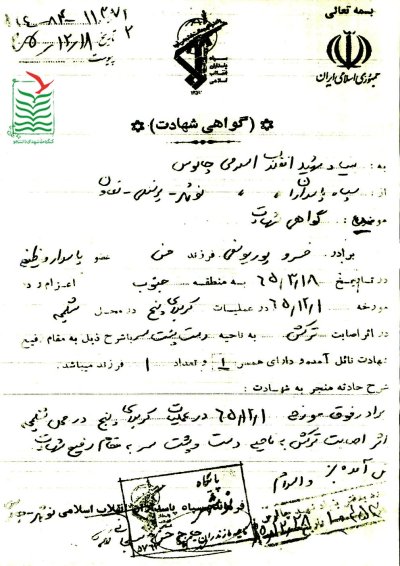 بسمه تعالی
جمهوری اسلامی ایران
تاریخ ۶۵/۱۲/۱۸
پیوست
سپاه پاسداران انقلاب اسلامی
(گواهی شهادت)
به: سپاه پاسداران انقلاب اسلامی چالوس
از: سپاه پاسداران " " نوشهر - پرسنلی - تعاون
موضوع: گواهی شهادت
برادر خسرو پوریوسفی فرزند حسن عضو پاسدار وظیفه
در تاریخ ۶۵/۳/۱۸ به منطقه جنوب اعزام و در
مورخه ۶۵/۱۲/۱ در عملیات کربلای پنج در محل شلمچه
در اثر اصابت ترکش به ناحیه دست پشت سر بشرح ذیل به مقام رفیع
شهادت نائل آمده و دارای همسر ۱ و تعداد ۱ فرزند میباشد.
شرح حادثه منجر به شهادت:
برادر فوق مورخه ۶۵/۱۲/۱ در عملیات کربلای پنج در محل شلمچه
اثر اصابت ترکش به ناحیه دست و پشت سر به مقام رفیع شهادت
والسلام
پایگاه
فرمانده سپاه پاسداران انقلاب اسلامی نوشهر